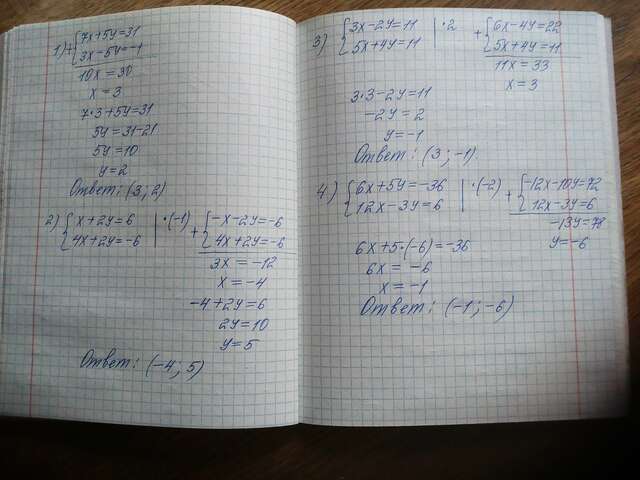 1) + { 7x + 5y = 31
3x - 5y = -1
10x = 30
x = 3
7·3 + 5y = 31
5y = 31-21
5y = 10
y = 2
Ответ: (3; 2)
2) { x + 2y = 6 | ·(-1) + { -x - 2y = -6
4x + 2y = -6 | 4x + 2y = -6
3x = -12
x = -4
-4 + 2y = 6
2y = 10
y = 5
Ответ: (-4; 5)
3) { 3x - 2y = 11 | ·2 + { 6x - 4y = 22
5x + 4y = 11 | 5x + 4y = 11
11x = 33
x = 3
3·3 - 2y = 11
-2y = 2
y = -1
Ответ: (3; -1)
4) { 6x + 5y = -36 | ·(-2) + { -12x - 10y = 72
12x - 3y = 6 | 12x - 3y = 6
-13y = 78
y = -6
6x + 5·(-6) = -36
6x = -6
x = -1
Ответ: (-1; -6)